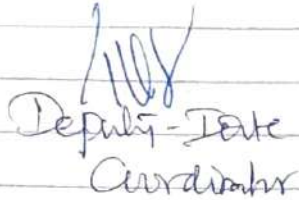 Deputy - State
Coordinator